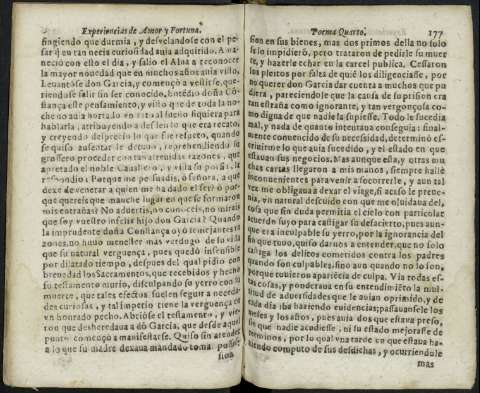 Experiencias de Amor y Fortuna.
fingiendo que durmia, y desvelandose con el pe-
sar q̃ en tan necia curiosidad auia adquirido. A ma-
neciò con esto el dia, y saliò el Alua a reconocer
la mayor nouedad que en muchos años auia visto.
Leuantòse don Garcia, y començò a vestirse, que-
riendose salir sin ser conocido, Entēdio doña Cõ-
stança este pensamiento, y visto que de toda la no-
che no auia hurtado vn rato al sueño siquiera para
hablarla, atribuyendo a desden lo que era recato,
y creyendo desprecio lo que fue respeto, quando
se quiso ausentar le detuuo, reprehendiendo su
grossero proceder con tan atreuidas razones, que
apretado el noble Cauallero, y
respondio. Porque me persuadis, señora, a que
dexe de venerar a quien me ha dado el ser? ò por-
que quereis que manche lugar en que se formaron
mis entrañas? No aduertis, no conoceis, no mirais
que soy vuestro infeliz hijo don Garcia? Quando
la imprudente doña Constança oyò semejantes ra
zones, no huuo menester mas verdugo de su vida
que su natural verguença, pues quedò insensible
por dilatado tiempo, despues del qual pidio con
breuedad los Sacramentos, que recebidos y hecho
su testamento murio, disculpando su yerro con su
muerte, que tales efectos suelen seguir a neceda-
des curiosas, y tal imperio tiene la verguença en
vn honrado pecho. Abriòse el testamento, y vie-
ron que desheredaua a dō Garcia, que desde aquel
punto començò a manifestarse. Quiso sin atender
a lo que su madre dexaua mandado tomar posse-
sion
Poema Quarto. 177
sion en sus bienes, mas dos primos della no solo
se lo impidieron, pero trataron de pedirle su muer
te, y hazerle echar en la carcel publica. Cessaron
los pleitos por falta de quiē los diligenciasse, por
no querer don Garcia dar cuenta a muchos que pu
diera, pareciendole que la causa de su prision era
tan estraña como ignorante, y tan vergonçosa co-
mo digna de que nadie la supiesse. Todo le sucedia
mal, y nada de quanto intentaua conseguia: final-
mente conuencido de su necessidad, determinò es-
criuirme lo que auia sucedido, y el estado en que
estauan sus negocios. Mas aunque esta, y otras mu
chas cartas llegaron a mis manos, siempre hallè
inconuenientes para venir a socorrerle, y aun tal
vez me obligaua a dexar el viage, si acaso le preue-
nia, vn natural descuido con que me oluidaua del,
cosa que sin duda permitia el cielo con particular
acuerdo suyo para castigar su desacierto, pues aun-
que era inculpable su yerro, por la ignorancia del
fin que tuuo, quiso darnos a entender, que no solo
castiga los delitos cometidos contra los padres
quando son culpables, sino aun quando no lo son,
porque tuuieron apariencia de culpa. Via todas es-
tas cosas, y ponderaua en su entendimiēto la mul-
titud de aduersidades que le auian oprimido, y de
cada dia iba haziendo euidencias; passauansele los
meses y los años, pues auia dos que estaua preso,
sin que nadie acudiesse, ni su estado mejorasse de
terminos, por lo qual vna tarde en que estaua ha-
ziendo computo de sus desdichas, y ocurriendole
mas